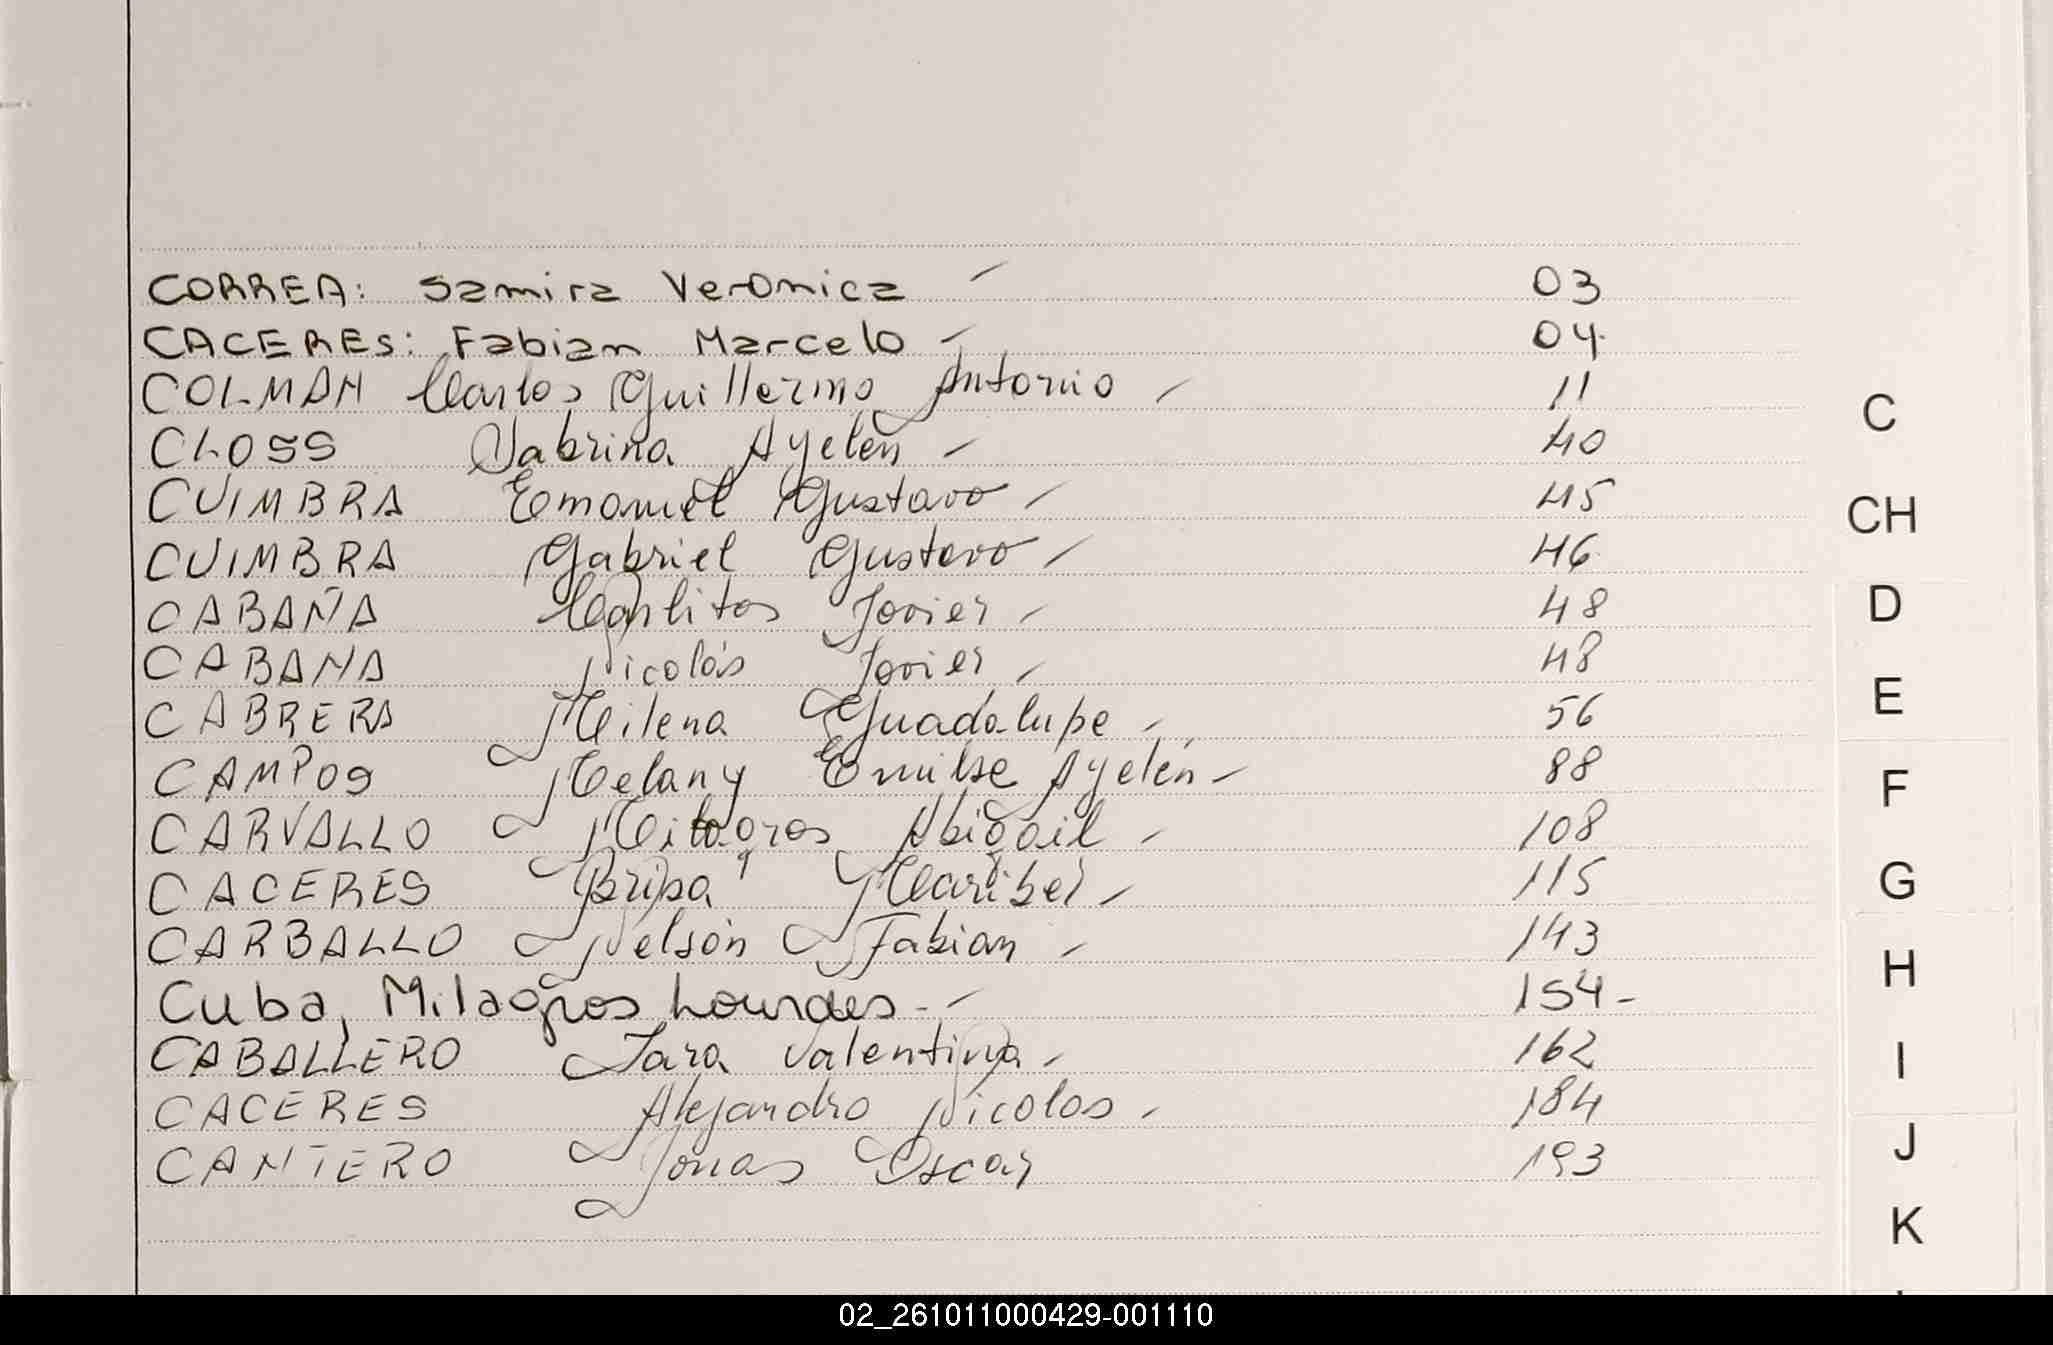 CORREA: Samira Veronica
03
CACERES: Fabian Marcelo
04.
COLMAN Carlos Guillermo Antonio
11
CLOSS Sabrina Ayelén
40
C
CUIMBRA Emanuel Gustavo
45
CH
CUIMBRA Gabriel Gustavo
46
CABAÑA Carlitos Javier
48
D
CABANA Nicolás Javier
48
CABRERA Milena Guadalupe
56
E
CAMPOS Melany Emilse Ayelén
88
F
CARVALLO Milagros Abigail
108
CACERES Brisa Maribel
115
G
CARBALLO Nelsón Fabian
143
H
Cuba, Milagros Lourdes.
154-
CABALLERO Sara Valentina
162
I
CACERES Alejandro Nicolas
184
CANTERO Jonas Oscar
193
J
K
02_261011000429-001110